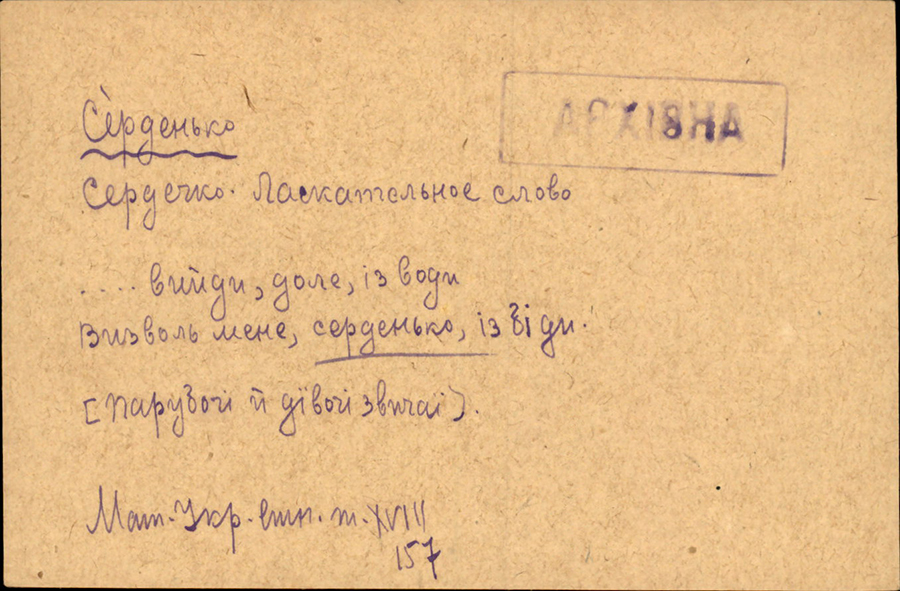 Се́рденько
АРХІВНА
Сердечко. Ласкательное слово
.... вийди, доле, із води
Визволь мене, серденько, із біди.
[Парубочі й дівочі звичаї).
Мат. Укр. етн. т. XVIII
157